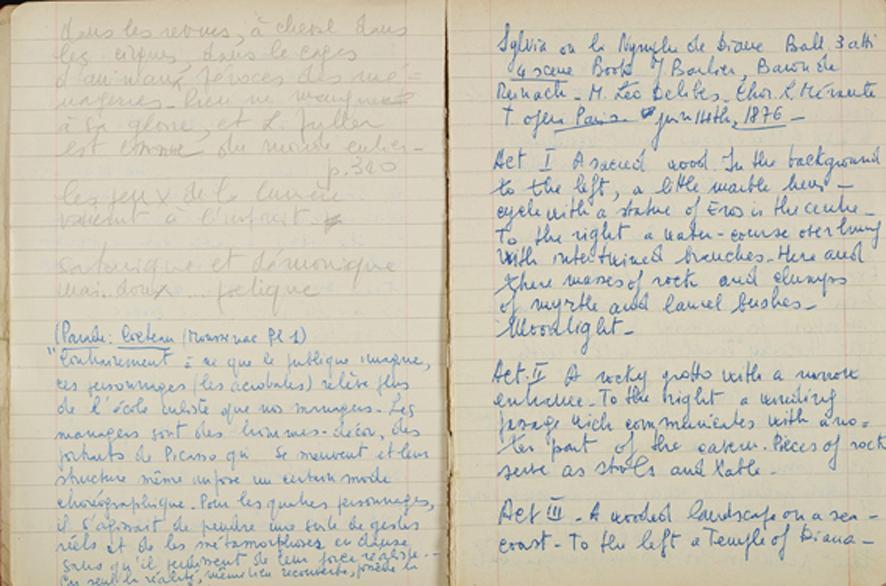 dans les revues, à cheval dans
les cirques, dans les cages
d'animaux féroces des mé=
nageries - Rien ne manque
à sa gloire, et L. Fuller
est connue du monde entier -
p. 340
les jeux de la lumière
varient à l'infini
Satanique et démonique
mais doux ... poétique
(Parade: Cocteau / Moussinac Pl 1)
"Contrairement à ce que le publique imagine,
ces personnages (les acrobates) relève plus
de l'école cubiste que nos managers - Les
managers sont des hommes-décor, des
portraits de Picasso qui se meuvent et leur
structure même impose un certain mode
choréographique. Pour les quatres personnages,
il s'agissait de prendre une suite de gestes
réels et de les métamorphoser en danse
sans qu'il perdissent de leur force réaliste. -
la réalité, même bien recouverte, possède la
Sylvia ou la Nymphe de Diane Ball. 3 atti
4 scene Book J Barbier, Baron de
Reinach - M. Léo Delibes - Chor. L. Mérante
T opera Paris - jun 14th, 1876 -
Act I A sacred wood. In the background
to the left, a little marble hemi -
cycle with a statue of Eros in the centre -
To the right a water-course overhung
with intertwined branches - Here and
there masses of rock and clumps
of myrtle and laurel bushes -
Moonlight -
Act. II A rocky grotto with a narrow
entrance - To the right a winding
passage wich communicates with ano=
ter part of the cavern. Pieces of rock
serve as stools and table -
Act III - A wooded landscape on a sea -
coast - To the left a Temple of Diana -